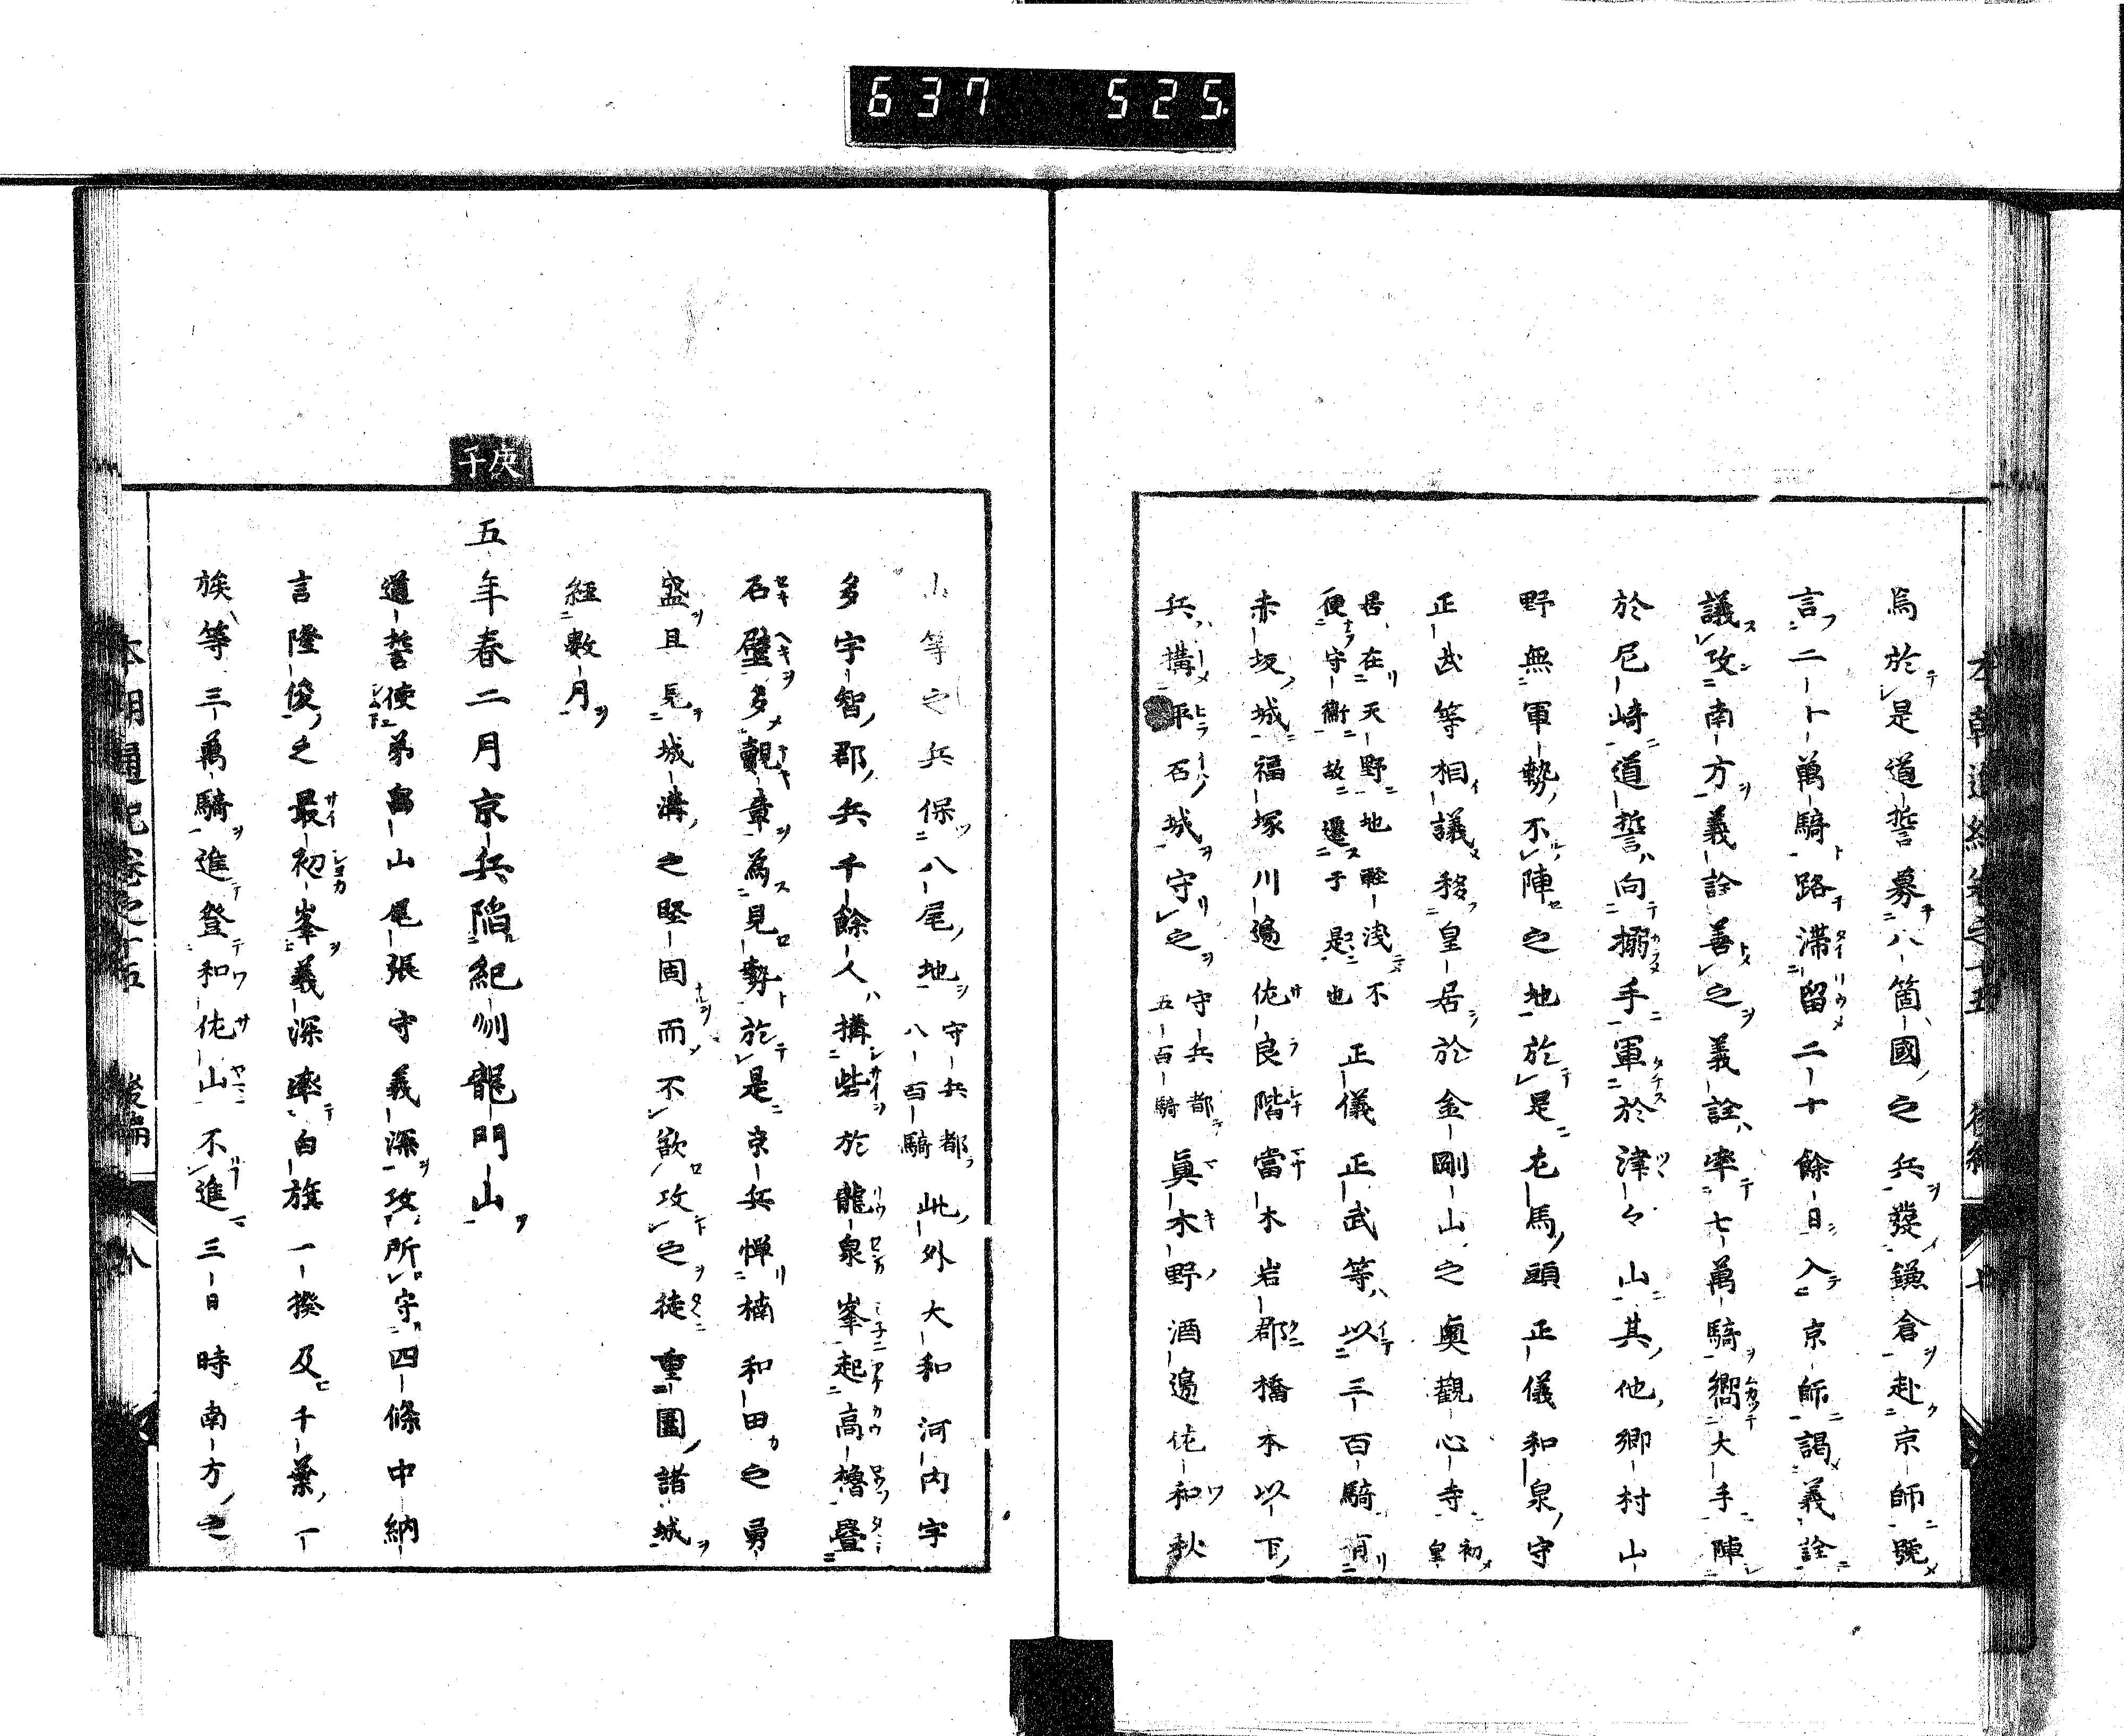 637 525
為於是道誓募八箇國之兵發鎌倉赴京師號
言二十萬騎路滯留二十餘日入京師謁義詮
議攻南方義詮善之義詮率七萬騎嚮大手陣
於尼崎道誓向搦手軍於津々山其他鄉村山
野無軍勢不陣之地於是屯馬頭正儀和泉守
正武等相議移皇居於金剛山之奧觀心寺初皇
居在天野地輕淺不
便守衞故遷于是也正儀正武等以三百騎有
赤坂城福塚川邊佐良階當木岩郡橋本以下
兵構平石城守之守兵都五百騎眞木野酒邊佐和秋
山等之兵保八尾地守兵都八百騎此外大和河内宇
多宇智郡兵千餘人構砦於龍泉峯起高櫓疊
石壁多覿章為見勢於是京兵憚楠和田之勇
盛且見城溝之堅固而不欲攻之徒重圍諸城
經數月
庚子
五年春二月京兵陷紀州龍門山
道誓使弟畠山尾張守義深攻所守四條中納
言隆俊之最初峯義深率白旗一揆及千葉一
族等三萬騎進登和佐山不進三日時南方之
本朝通紀卷之十五 後編 八